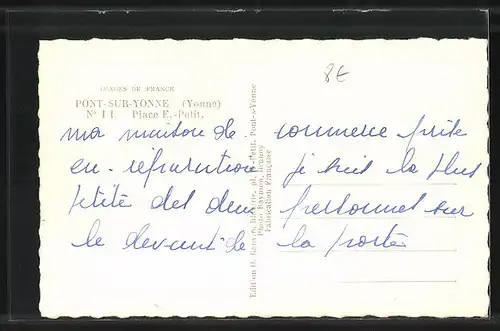 8E
IMAGES DE FRANCE
PONT-SUR-YONNE (Yonne)
N° 11. Place E.-Petit.
ma maison de commerce prise
en réparation je suis la plus
petite des deux personnes sur
le devant de la porte
Pont-s-Yonne
Fabrication Française